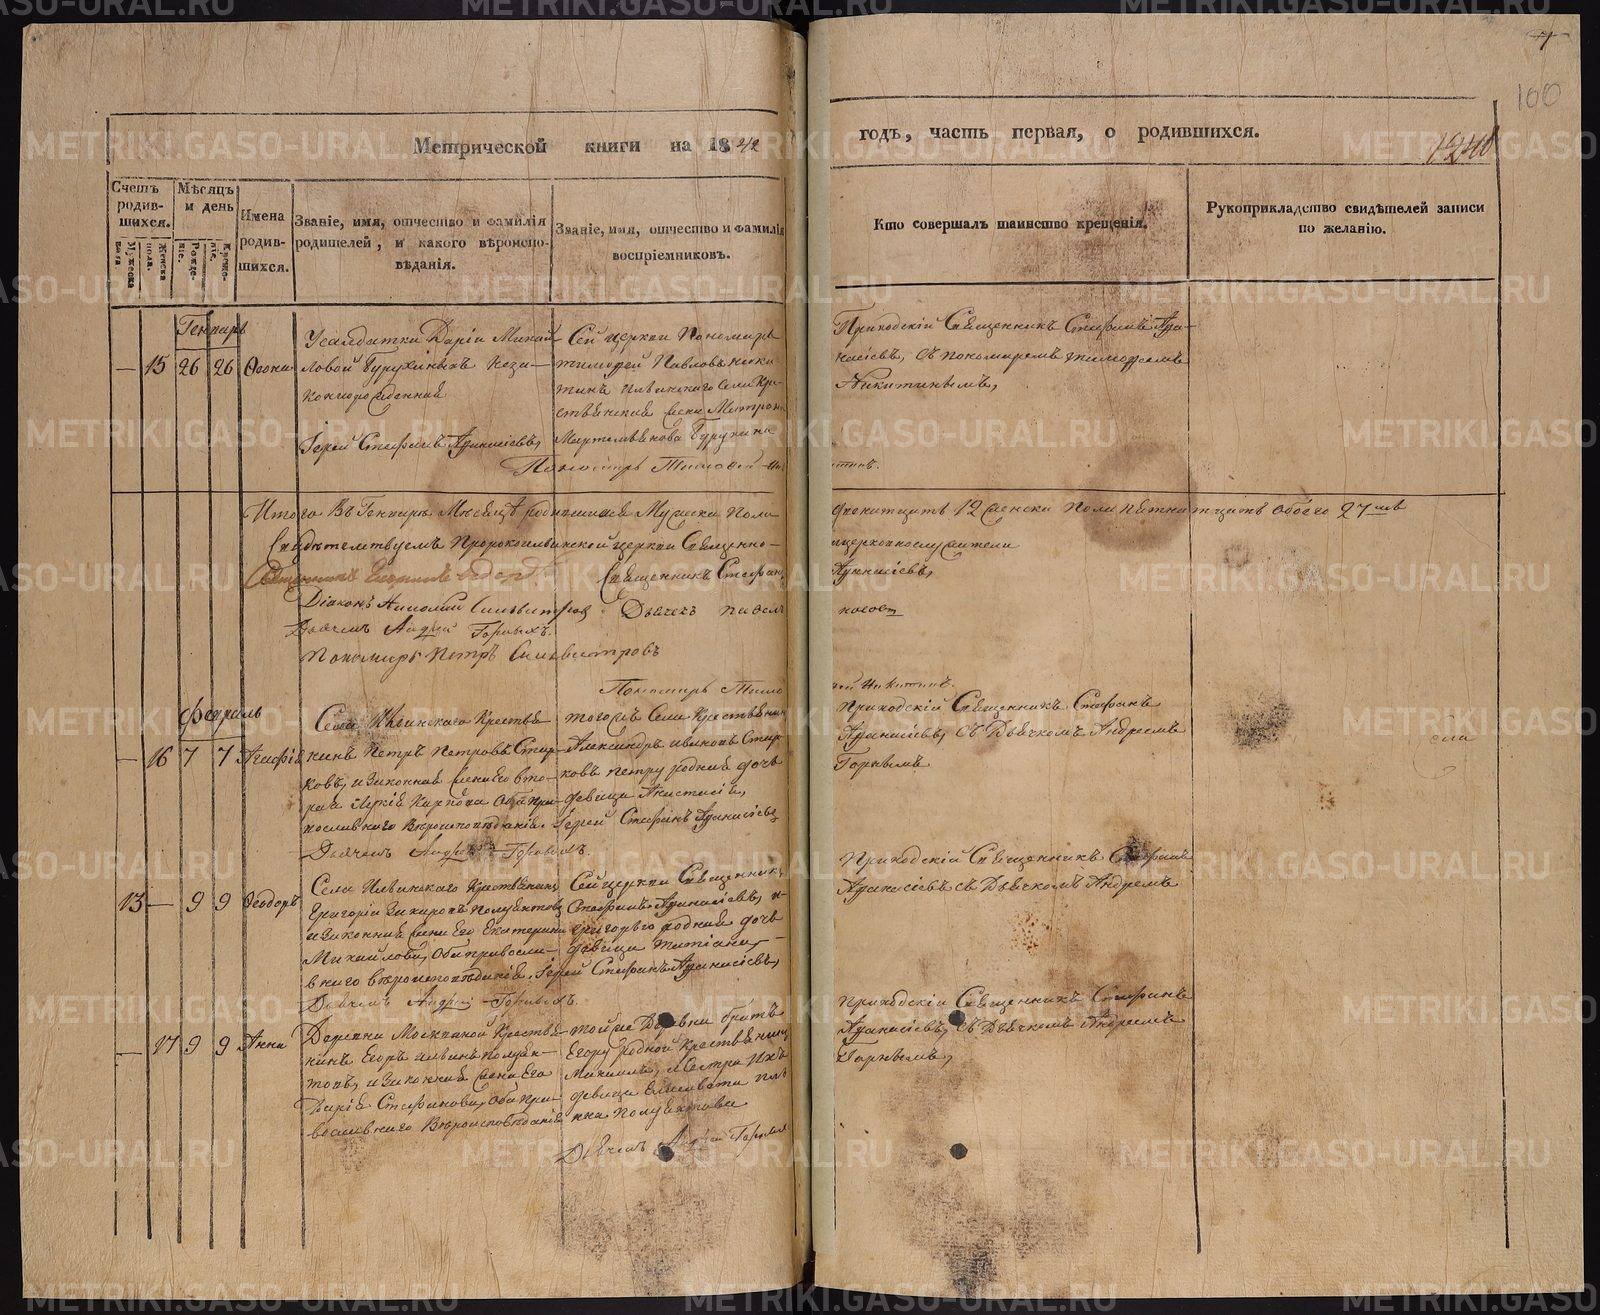 Метрической книги на 1842
годъ, часть первая, о родившихся.
100
1240
Счетъ родив-шихся.
Мужеска пола.
Женска пола.
Мѣсяцъ и день
Рожде-ніе.
Креще-ніе.
Имена родив-шихся.
Званіе, имя, отчество и фамилія родителей, и какого вѣроиспо-вѣданія.
Званіе, имя, отчество и фамилія воспріемниковъ.
Кто совершалъ таинство крещенія.
Рукоприкладство свидѣтелей записи по желанію.
Генваръ
— 15 26 26
Усалдатки Даріи Михай
ловой Бурухиныхъ Неза—
коннорожденная
Іерей Стефанъ Афанасіевъ,
Сей церкви Пономаръ
тимофей Павловъ ники
тинъ ильинскаго села Кре
стьянская жена Матрона
Бурухина
Пономаръ Тимофей
Приходскій Священникъ Стефанъ Афа-
насіевъ, съ пономаремъ тимофеемъ
Никитинымъ,
Итого Въ Генваръ Мѣсяцѣ родившихся Мужска Пола
12 женска пола пятнатцать обоего 27
Свидѣтелствуемъ Пророкоильинской церкви Священно—
церковнослужители
Священникъ Стефанъ
Афанасіевъ,
Діаконъ
Дьячекъ Андрей Горныхъ.
Пономаръ Петръ Силвестровъ
Пономаръ Тимо
фей Никитинъ.
Февраль
— 16 7 7 Агафія
Села Ильинскаго Крестья
нинъ Петръ Петровъ Стар
ковъ, и законная жена его вто
рая Карпова Оба пра-
вославнаго Вѣроисповѣданія. Іерей Стефанъ Афанасіевъ
Дьячекъ Андрей Горныхъ.
тогоже Села Крестьянин
Александръ ивановъ Стар
ковъ петру родная дочь
девица Анастасія,
Приходскій Священникъ Стефанъ
Афанасіевъ, съ Дьячкомъ Андреемъ
Горнымъ
13 — 9 9 Ѳеодоръ
Села Ильинскаго Крестьянинъ
Григорій Захаровъ Полуяктовъ
и законная жена Его Екатерина
Михайлова, Оба правосла—
внаго вѣроисповѣданія. Іерей Стефанъ Афанасіевъ,
Дьячекъ Андрей Горныхъ.
Сей церкви Священникъ
Стефанъ Афанасіевъ, и
григорьго родная дочь
девица татіана,
Приходскій Священникъ Стефанъ
Афанасіевъ съ Дьячкомъ Андреемъ
— 17 9 9 Анна
Деревни Москвиной Крестья
нинъ Егоръ ильинъ полуяк—
товъ, и Законная жена Его
Дарія Стефанова, Оба пра-
вославнаго Вѣроисповѣданія
тойже Деревни братъ
Егору родной Крестьянинъ
Михаилъ, и сестра ихъ
девица Елисавета иль
ина полуяктова
Дьячекъ Андрей Горныхъ
Приходскій Священникъ Стефанъ
Афанасіевъ, съ Дьячкомъ Андреемъ
Горнымъ,
METRIKI.GASO-URAL.RU